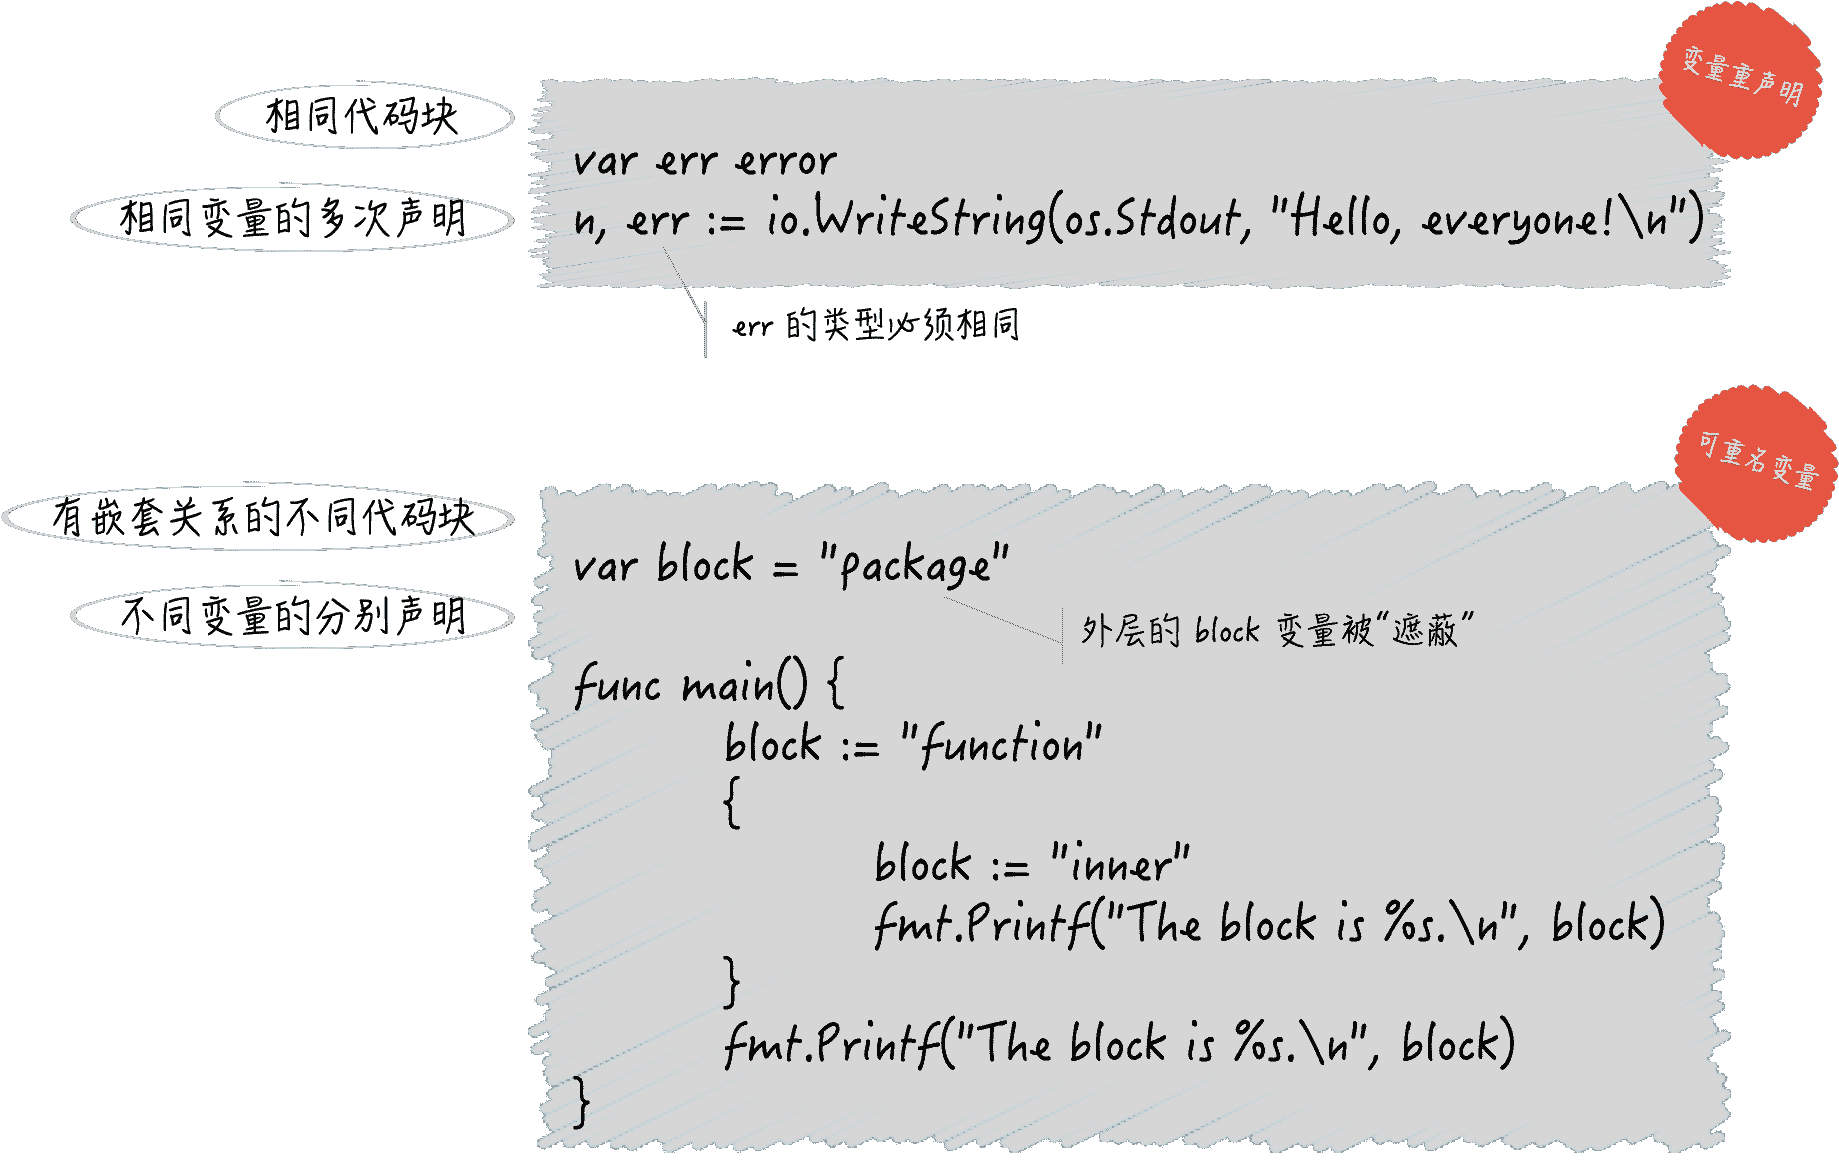 变量重声明
相同代码块
相同变量的多次声明
var err error
n, err := io.WriteString(os.Stdout, "Hello, everyone!\n")
err 的类型必须相同
可重名变量
有嵌套关系的不同代码块
不同变量的分别声明
var block = "package"
外层的 block 变量被“遮蔽”
func main() {
block := "function"
{
block := "inner"
fmt.Printf("The block is %s.\n", block)
}
fmt.Printf("The block is %s.\n", block)
}